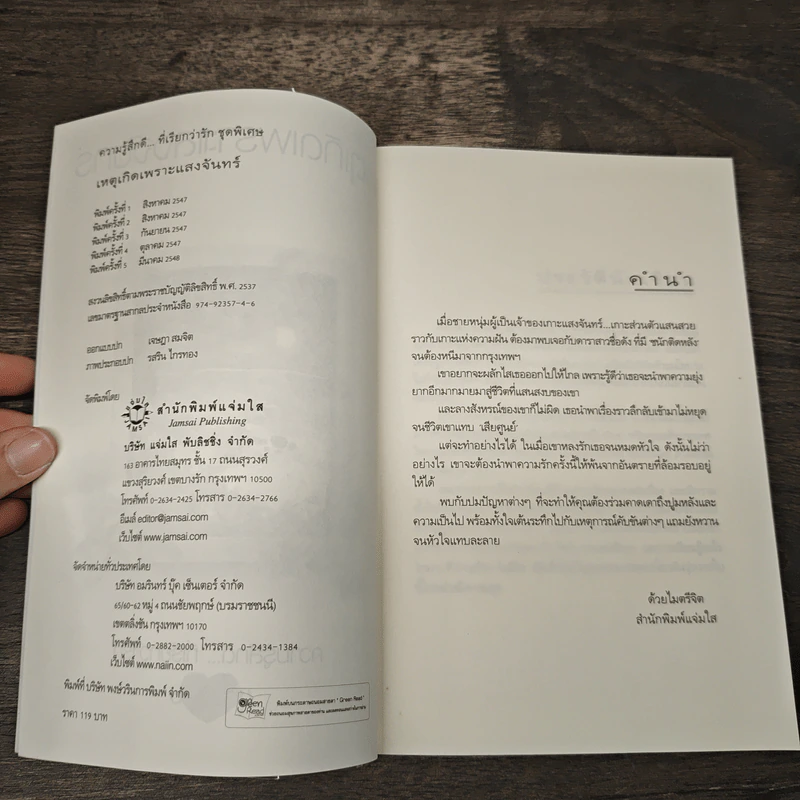 ความรู้สึกดี... ที่เรียกว่ารัก ชุดพิเศษ
เหตุเกิดเพราะแสงจันทร์
พิมพ์ครั้งที่ 1 สิงหาคม 2547
พิมพ์ครั้งที่ 2 สิงหาคม 2547
พิมพ์ครั้งที่ 3 กันยายน 2547
พิมพ์ครั้งที่ 4 ตุลาคม 2547
พิมพ์ครั้งที่ 5 มีนาคม 2548
สงวนลิขสิทธิ์ตามพระราชบัญญัติลิขสิทธิ์ พ.ศ. 2537
เลขมาตรฐานสากลประจำหนังสือ 974-92357-4-6
ออกแบบปก เจษฎา สมจิต
ภาพประกอบปก รสริน ไกรทอง
จัดพิมพ์โดย
สำนักพิมพ์แจ่มใส
Jamsai Publishing
บริษัท แจ่มใส พับลิชชิ่ง จำกัด
163 อาคารไทยสมุทร ชั้น 17 ถนนสุรวงศ์
แขวงสุริยวงศ์ เขตบางรัก กรุงเทพฯ 10500
โทรศัพท์ 0-2634-2425 โทรสาร 0-2634-2766
อีเมล์ editor@jamsai.com
เว็บไซต์ www.jamsai.com
จัดจำหน่ายทั่วประเทศโดย
บริษัท อมรินทร์ บุ๊ค เซ็นเตอร์ จำกัด
65/60-62 หมู่ 4 ถนนชัยพฤกษ์ (บรมราชชนนี)
เขตตลิ่งชัน กรุงเทพฯ 10170
โทรศัพท์ 0-2882-2000 โทรสาร 0-2434-1384
เว็บไซต์ www.naiin.com
พิมพ์ที่ บริษัท พงษ์วรินการพิมพ์ จำกัด
ราคา 119 บาท
Green Read
พิมพ์บนกระดาษถนอมสายตา "Green Read"
คำนำ
เมื่อชายหนุ่มผู้เป็นเจ้าของเกาะแสงจันทร์...เกาะส่วนตัวแสนสวย
ราวกับเกาะแห่งความฝัน ต้องมาพบเจอกับดาราสาวชื่อดัง ที่มี 'ชนักติดหลัง'
จนต้องหนีมาจากกรุงเทพฯ
เขาอยากจะผลักไสเธอออกไปให้ไกล เพราะรู้ดีว่าเธอจะนำพาความยุ่ง
ยากอีกมากมายมาสู่ชีวิตที่แสนสงบของเขา
และลางสังหรณ์ของเขาก็ไม่ผิด เธอนำพาเรื่องราวลึกลับเข้ามาไม่หยุด
จนชีวิตเขาแทบ 'เสียศูนย์'
แต่จะทำอย่างไรได้ ในเมื่อเขาหลงรักเธอจนหมดหัวใจ ดังนั้นไม่ว่า
อย่างไร เขาจะต้องนำพาความรักครั้งนี้ให้พ้นจากอันตรายที่ล้อมรอบอยู่
ให้ได้
พบกับปมปัญหาต่างๆ ที่จะทำให้คุณต้องร่วมคาดเดาถึงปูมหลังและ
ความเป็นไป พร้อมทั้งใจเต้นระทึกไปกับเหตุการณ์คับขันต่างๆ แถมยังหวาน
จนหัวใจแทบละลาย
ด้วยไมตรีจิต
สำนักพิมพ์แจ่มใส